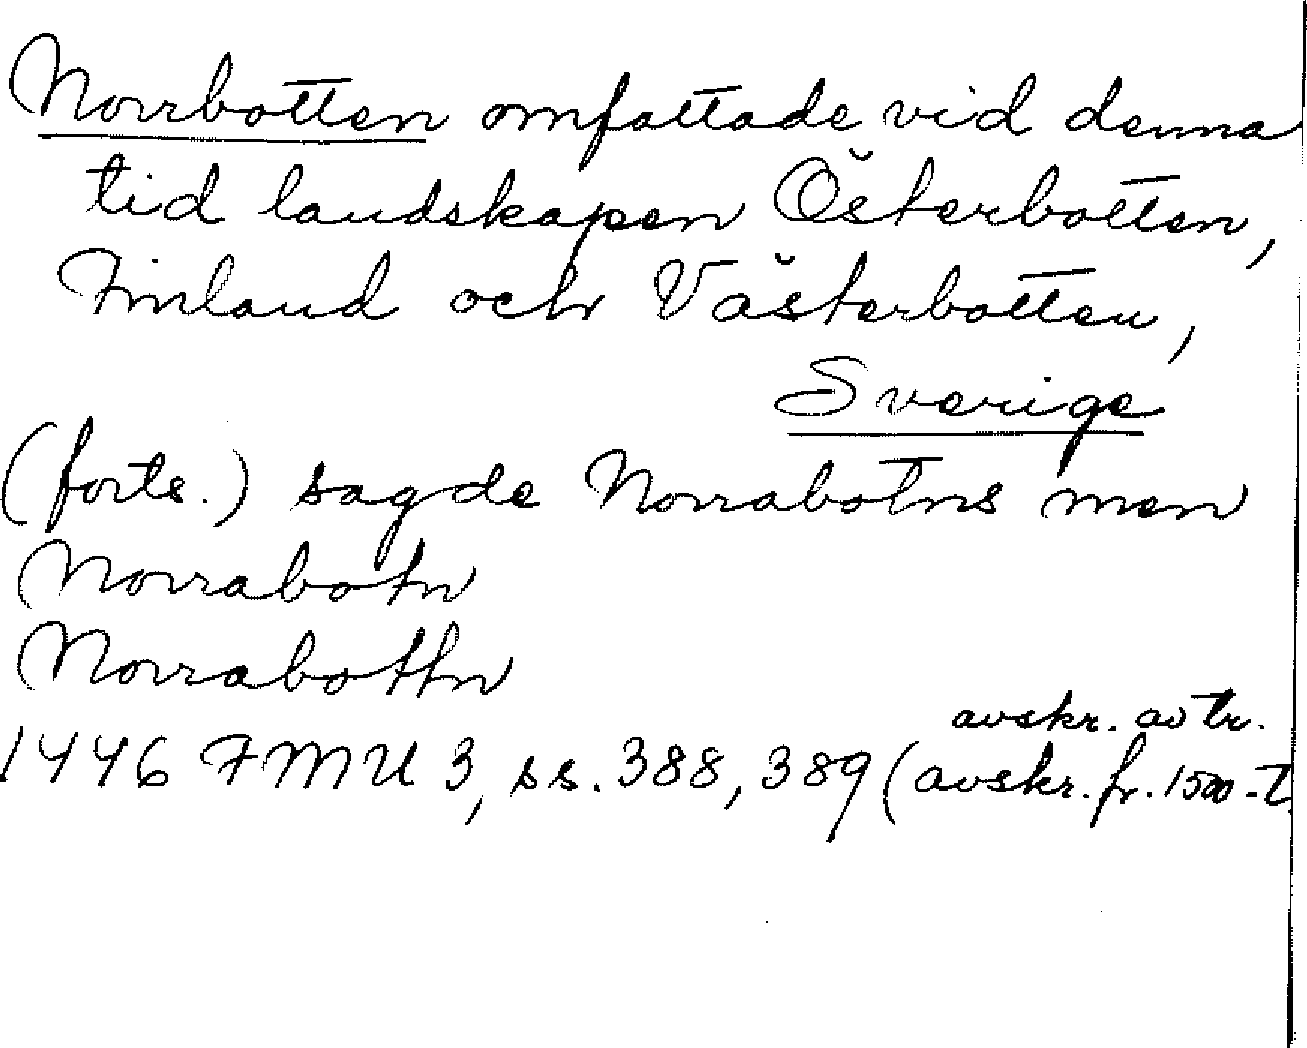 Norrbotten omfattade vid denna
tid landskapen Österbotten,
Finland och Västerbotten,
Sverige
(forts.) sagde Norrabotns men
Norrabotn
Norrabottn
avskr. av tr.
1446 FMU 3, ss. 388, 389 (avskr. fr. 1500-t.